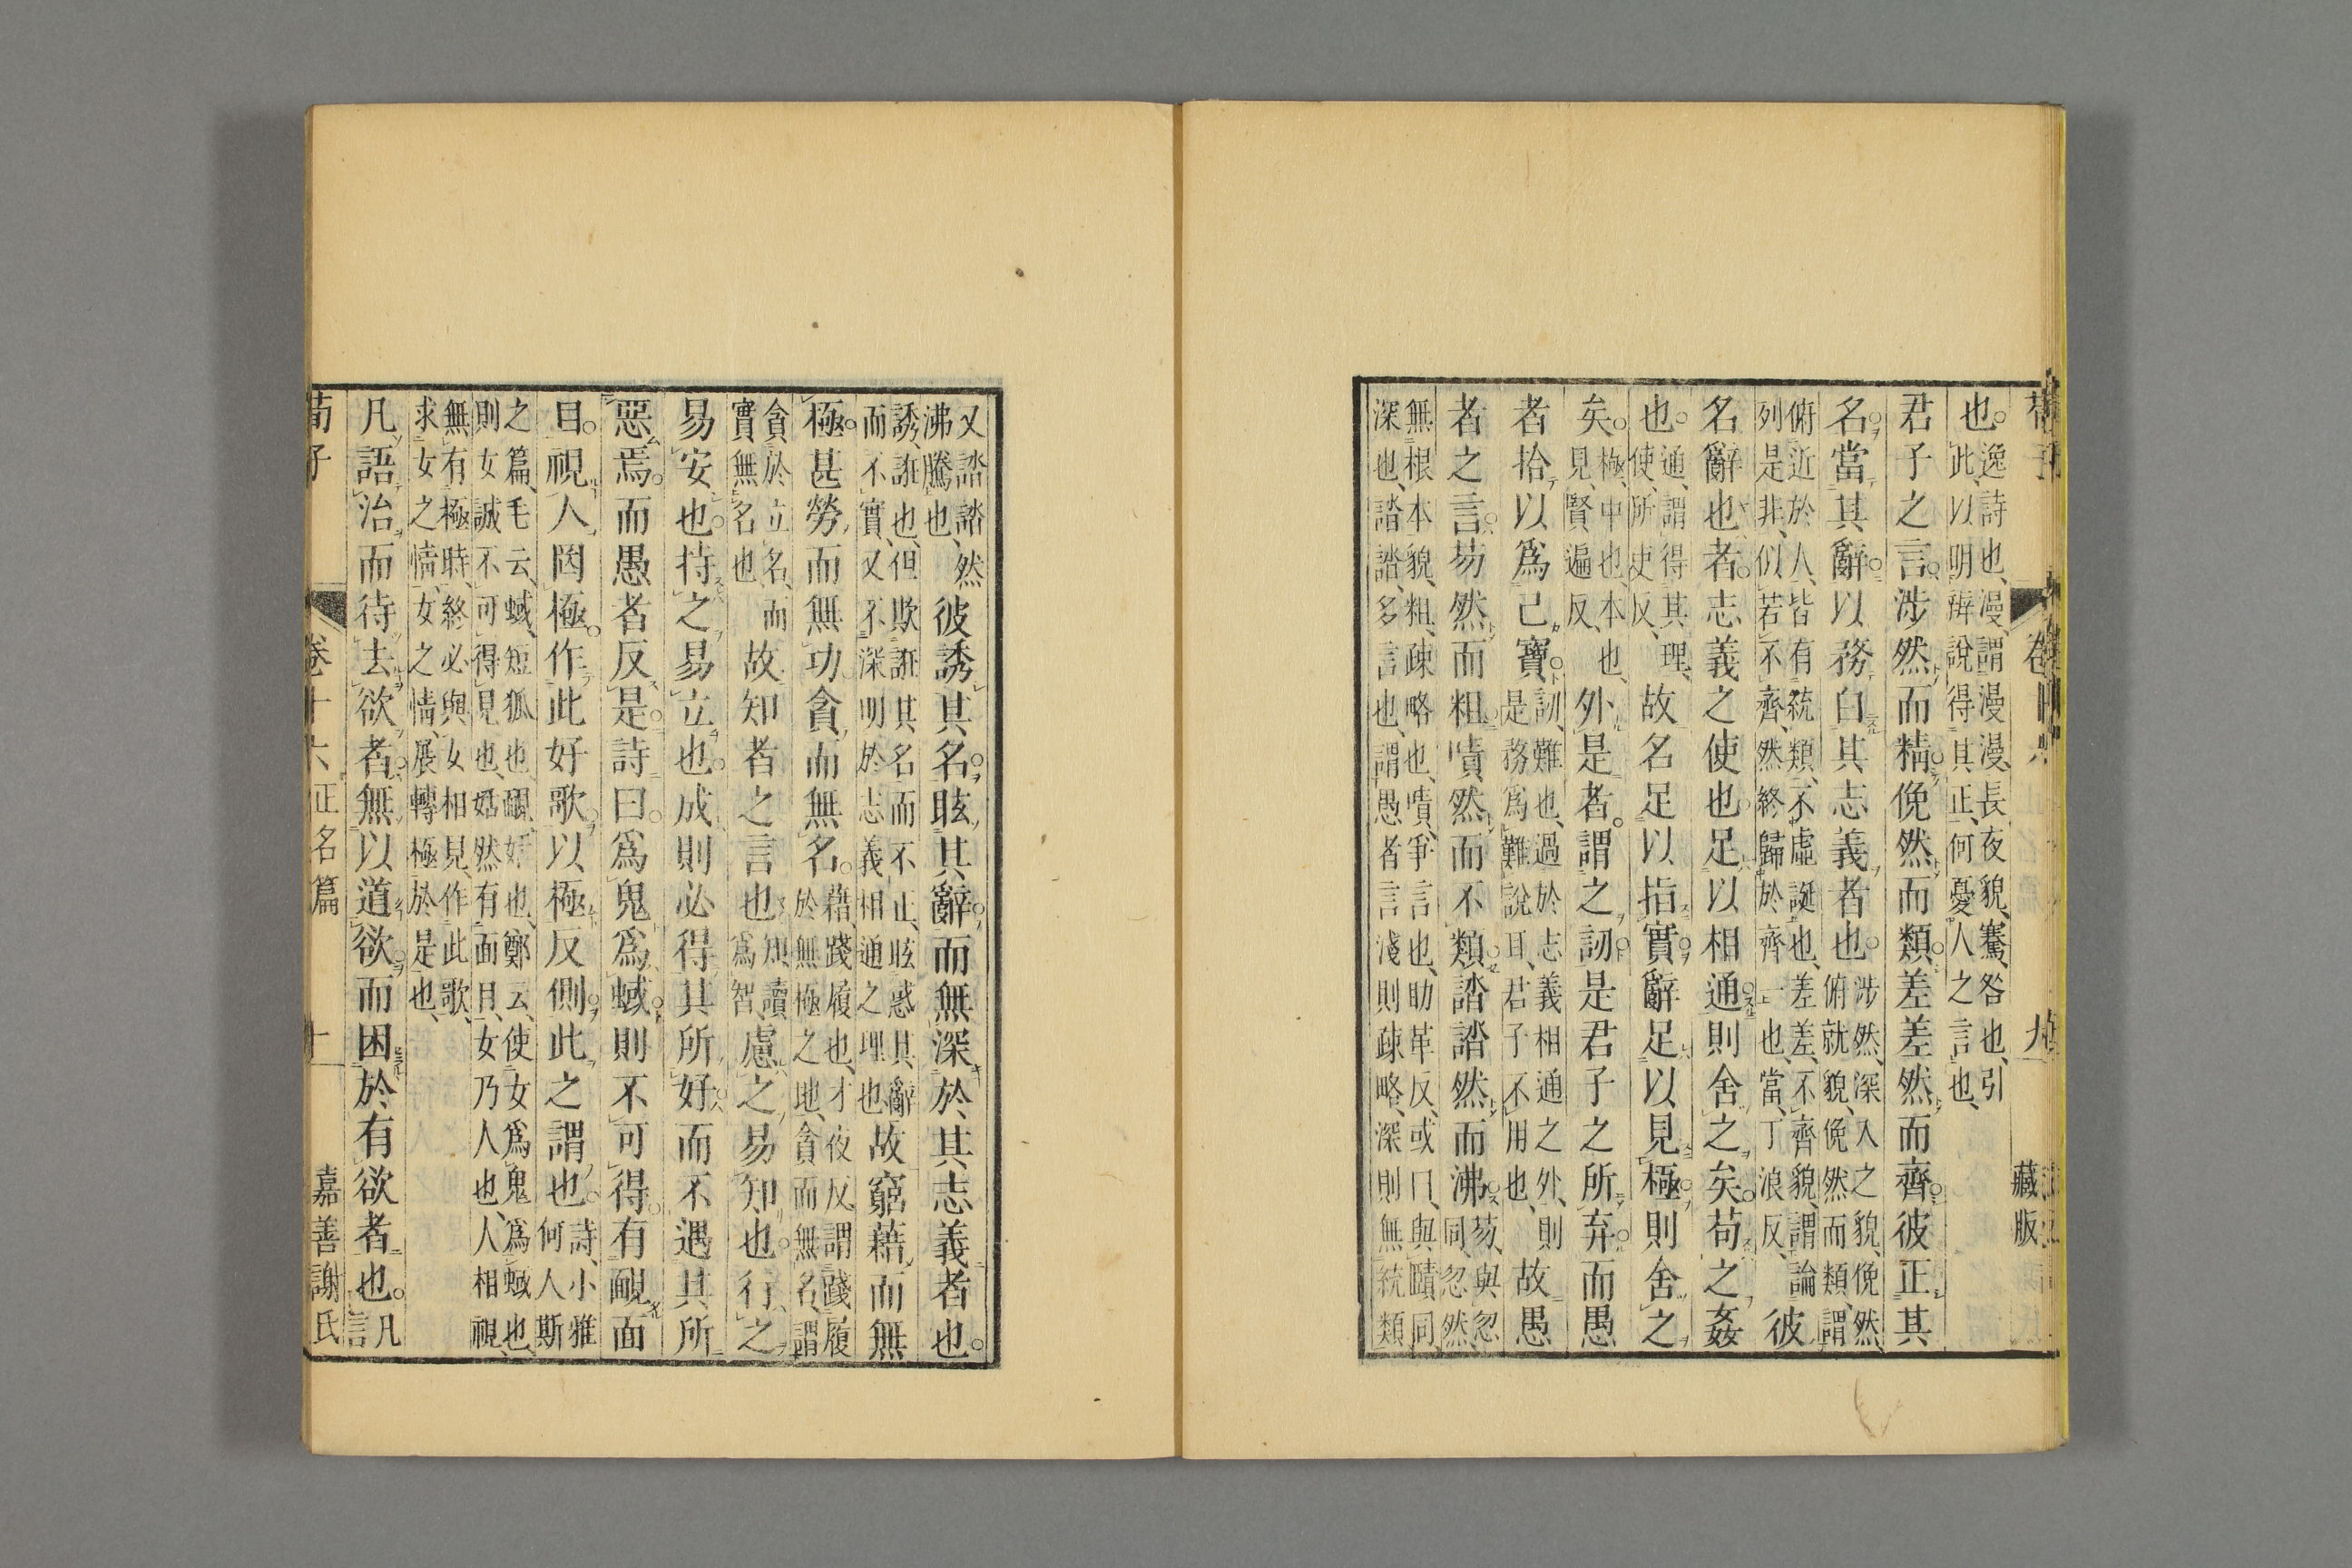 也。逸詩也、漫、謂漫漫、長夜貌、騫、咎也、引
此、以明辨說得其正、何憂人之言也、
君子之言。涉然而精俛然而類。差差然而齊。彼正其
名。當其辭。以務白其志義者也。涉然、深入之貌、俛然、
俯就貌、俛然而類、謂
俯近於人、皆有統類、不虛誕也、差差、不齊貌、謂論
列是非、似若不齊、然終歸於齊一也、當、丁浪反、彼
名辭也者。志義之使也足以相通則舍之矣。苟之姦
也。通、謂得其理、
使、所吏反、故名足以指實辭足以見極則舍之
矣。極、中也、本也、
見、賢遍反、外是者。謂之訒是君子之所弃而愚
者拾以爲己寶。訒、難也、過於志義相通之外、則
是務爲難說耳、君子不用也、故愚
者之言。芴然而粗嘖然而不類。誻誻然而沸。芴、與忽
同、忽然、
無根本貌、粗、疎略也、嘖、爭言也、助革反、或曰、與賾同、
深也、誻誻、多言也、謂愚者言淺則疎略、深則無統類
荀子
卷十六
九
藏版
又誻誻然
沸騰也、彼誘其名。眩其辭。而無深於其志義者也。
誘、誑也、但欺誑其名而不正、眩惑其辭
而不實、又不深明於志義相通之理也、故窮藉而無
極。甚勞而無功貪而無名。藉、踐履也、才夜反、謂踐履
於無極之地、貪而無名、謂
貪於立名、而
實無名也、故知者之言也知讀
爲智、慮之易知也。行之
易安也。持之易立也。成則必得其所好而不遇其所
惡焉。而愚者反是。詩曰。爲鬼爲蜮則不可得。有靦面
目。視人罔極。作此好歌。以極反側。此之謂也。詩、小雅
何人斯
之篇、毛云、蜮、短狐也、靦、姡也、鄭云、使女爲鬼爲蜮也、
則女誠不可得見也、姡然有面目、女乃人也、人相視、
無有極時、終必與女相見、作此歌、
求女之情、女之情、展轉極於是也、
凡語治而待去欲者。無以道欲。而困於有欲者也。凡
言
荀子
卷十六 正名篇
十
嘉善謝氏